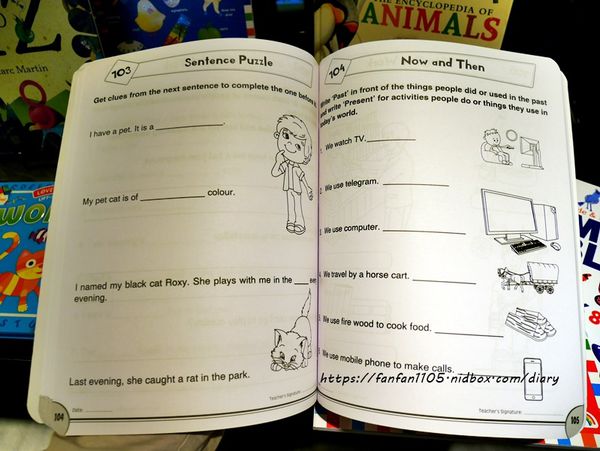 THE ENCYCLOPEDIA OF
ANIMALS
arc Martin
103
Sentence Puzzle
Get clues from the next sentence to complete the one before it.
I have a pet. It is a ______________.
My pet cat is of ____________ colour.
I named my black cat Roxy. She plays with me in the ____
evening.
Last evening, she caught a rat in the park.
104
Date:
104
Now and Then
Write 'Past' in front of the things people did or used in the past
and write 'Present' for activities people do or things they use in
today's world.
We watch TV.
2. We use telegram.
3. We use computer.
4. We travel by a horse cart.
We use fire wood to cook food.
We use mobile phone to make calls.
https://fanfan1105.nidbox.com/diary
Teacher's Signature:
105